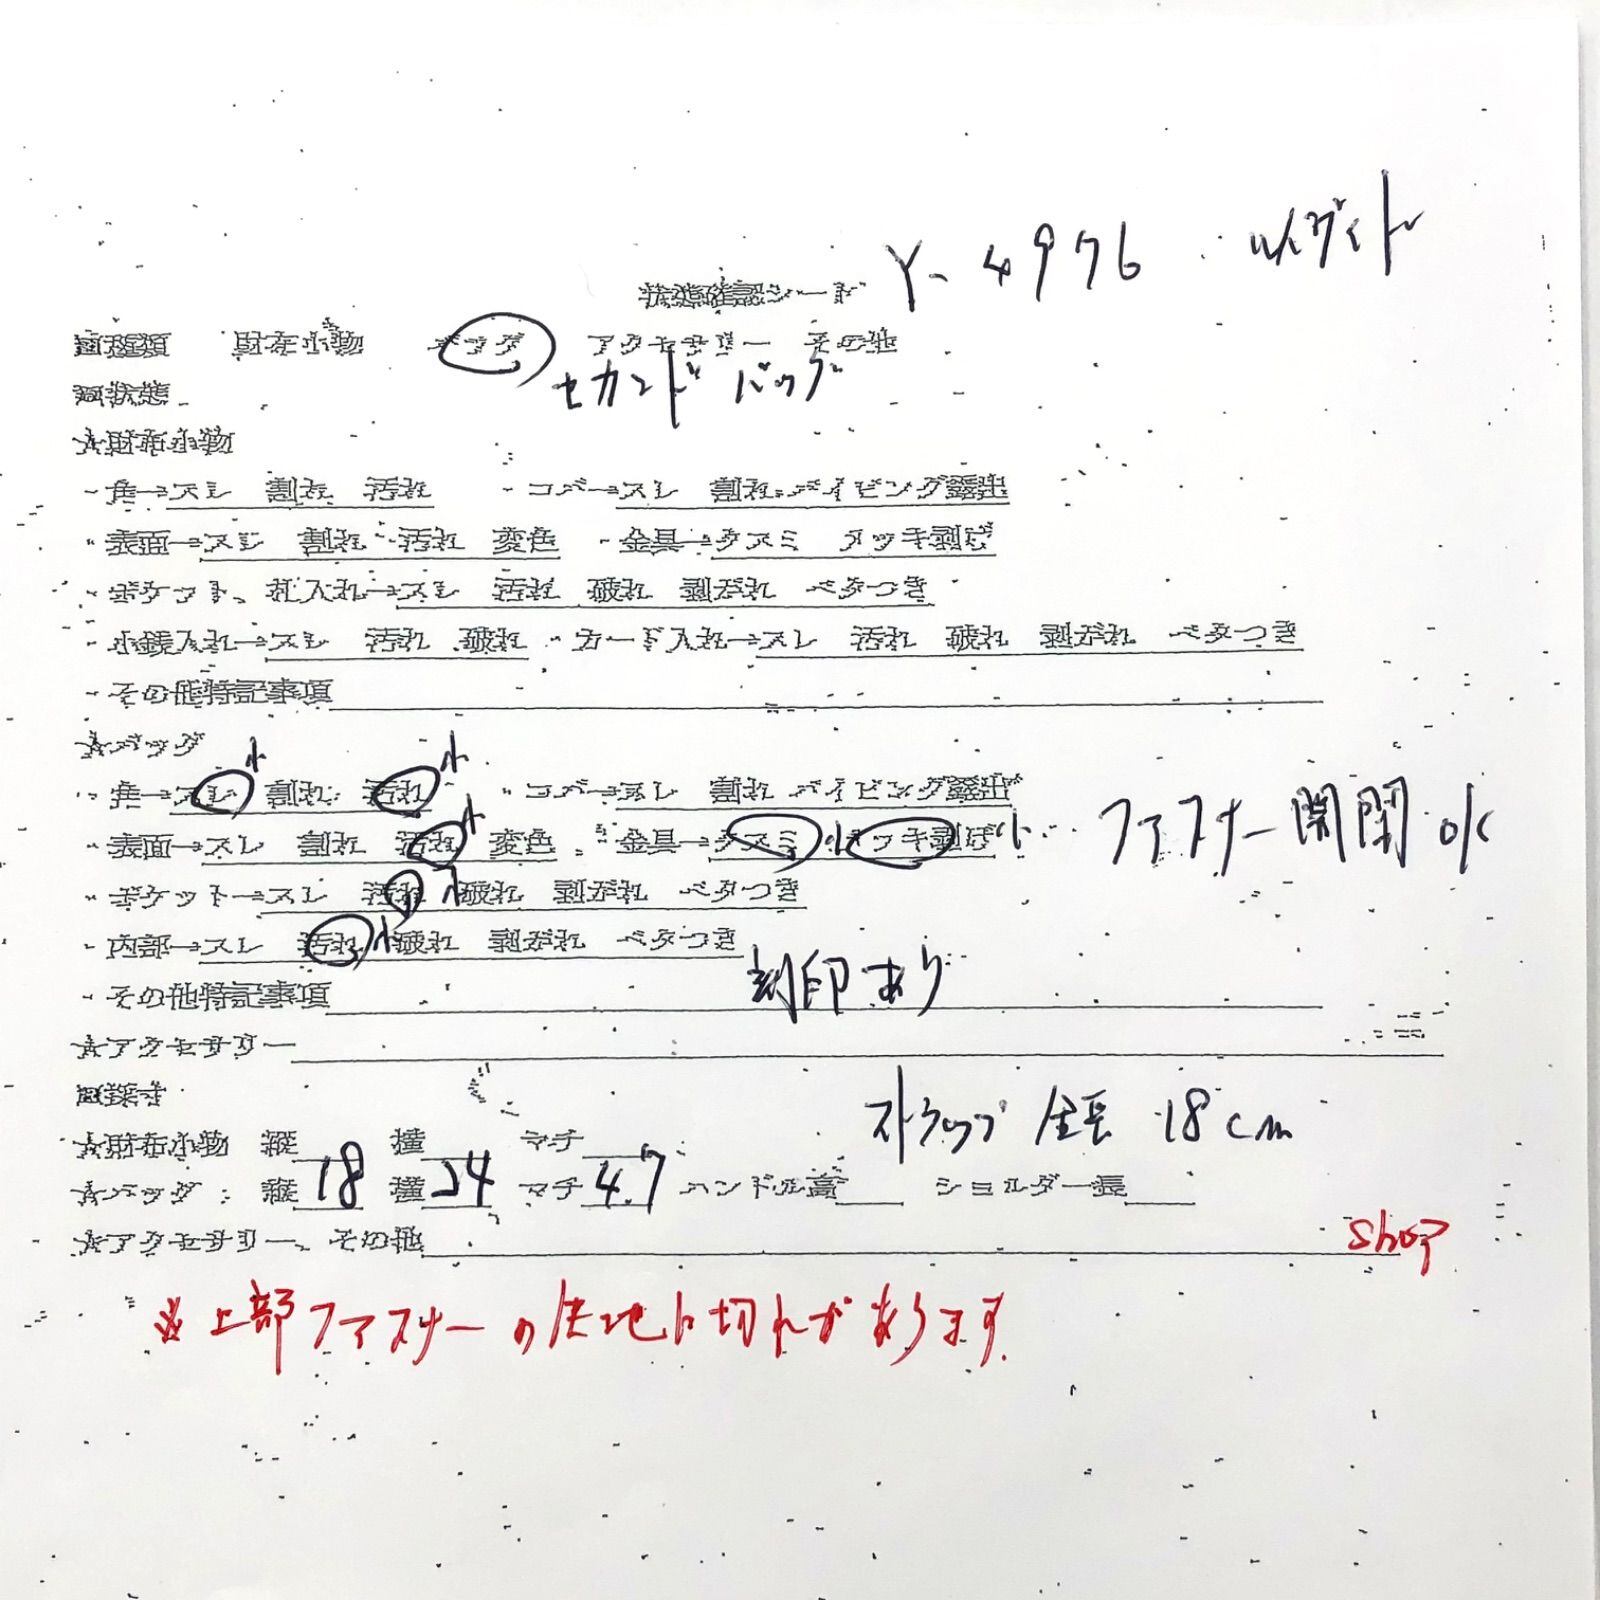 状態確認シート Y-4976
□種類 財布小物 バッグ アクセサリー その他
セカンドバッグ
□状態
☆財布小物
・角→スレ 割れ 汚れ ・コバ→スレ 割れ パイピング露出
・表面→スレ 割れ 汚れ 変色 ・金具→クスミ メッキ剥げ
・ポケット、札入れ→スレ 汚れ 破れ 剥がれ ベタつき
・小銭入れ→スレ 汚れ 破れ ・カード入れ→スレ 汚れ 破れ 剥がれ ベタつき
・その他特記事項
☆バッグ
・角→スレ小 割れ 汚れ小 ・コバ→スレ 割れ パイピング露出
・表面→スレ 割れ 汚れ小 変色 ・金具→クスミ小 メッキ剥げ小 ファスナー開閉OK
・ポケット→スレ 汚れ小 破れ 剥がれ ベタつき
・内部→スレ 汚れ小 破れ 剥がれ ベタつき
・その他特記事項 刻印あり
☆アクセサリー
□採寸
ストラップ 全長 18cm
☆財布小物 縦 横 マチ
☆バッグ：縦 18 横 24 マチ 4.7 ハンドル高 ショルダー長
☆アクセサリー、その他
shop
※上部ファスナーの生地に切れがあります